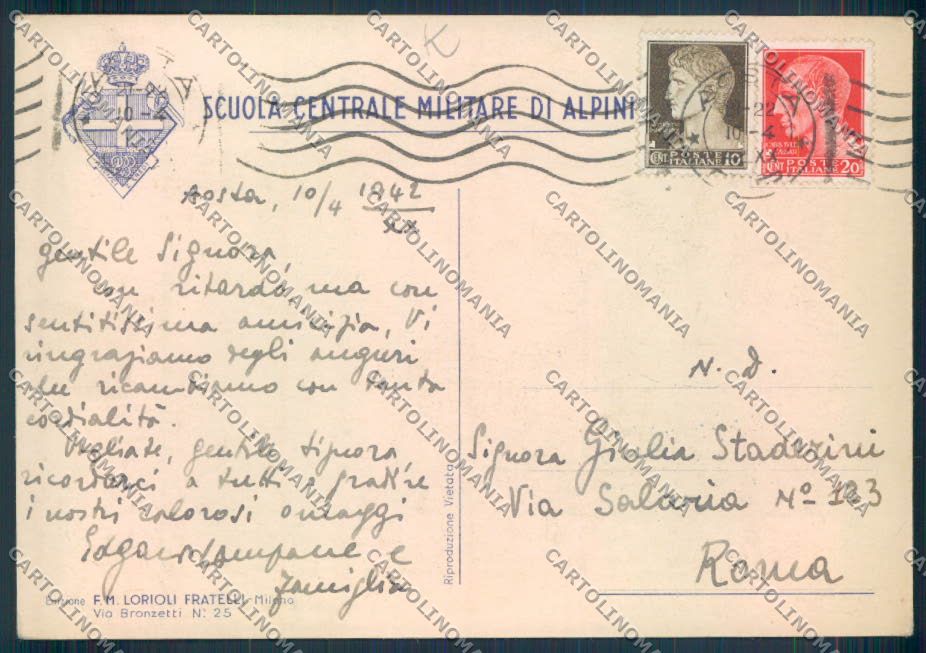 SCUOLA CENTRALE MILITARE DI ALPINI
POSTE ITALIANE
CENT 10
POSTE ITALIANE
CENT 20
Aosta, 10/4 1942/XX
Gentile Signora,
con ritardo, ma con
sentitissima amicizia, Vi
ringraziamo degli auguri
che ricambiamo con tanta
cordialità.
Vogliate, gentile Signora
ricordarci a tutti e gradire
i nostri calorosi omaggi
Edgardo e
famiglia
N. D.
Signora Giulia Staderini
Via Salaria Nº 193
Roma
Riproduzione Vietata
Edizione F. M. LORIOLI FRATELLI - Milano
Via Bronzetti N. 25
CARTOLINOMANIA